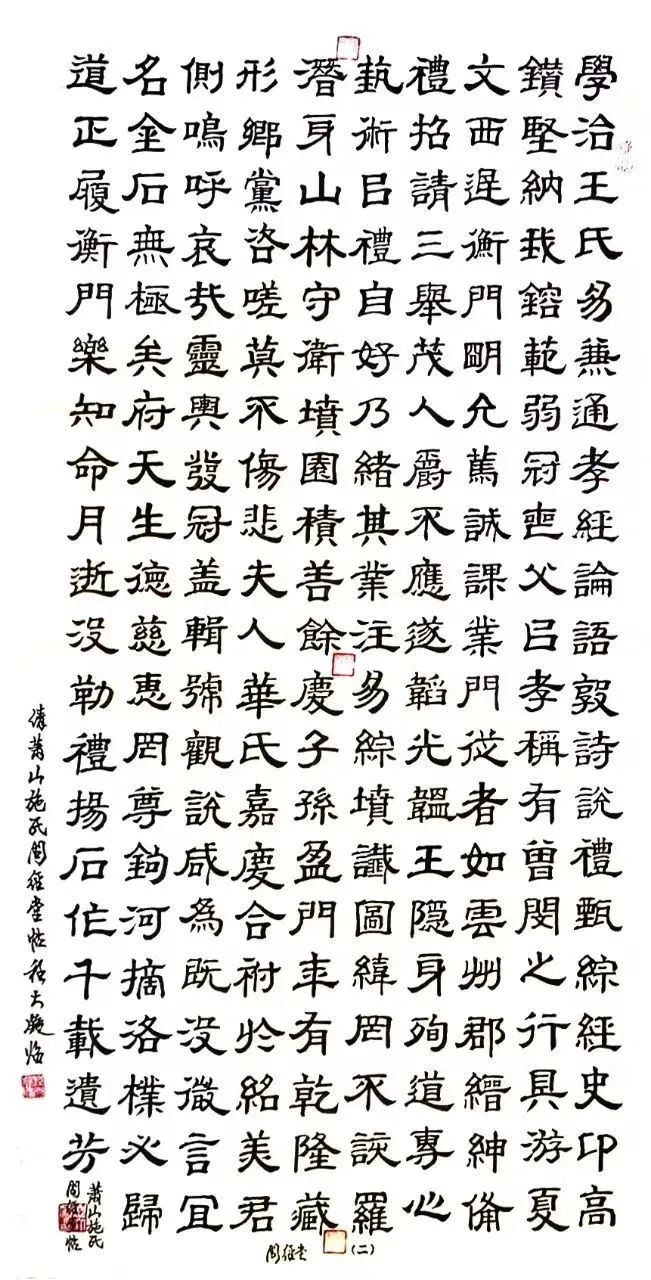 學治王氏易兼通孝經論語敦詩說禮甄綜經史卬高
鑚堅納我鎔範弱冠喪父㠯孝稱有曾閔之行具游夏
文西遅衡門朙允篤誠課業門從者如雲州郡縉紳俻
禮招請三舉茂人爵不應遂韜光韞王隱身殉道專心
埶術㠯禮自好乃緒其業注易綜墳讖圖緯罔不詼羅
潛身山林守衛墳園積善餘慶子孫盈門年有乾隆藏
形鄉黨咨嗟莫不傷悲夫人華氏嘉慶合祔於銘美君
側鳴呼哀哉靈輿發冠盖輯號觀說咸為既没微言宜
名金石無極矣府天生德慈惠罔尊鉤河摘洛樸必歸
道正履衡門樂知命月逝没勒禮揚石作千載遺芳
蕭山施氏
閣經堂帖
清蕭山施氏閣經堂帖
閣經堂(二)